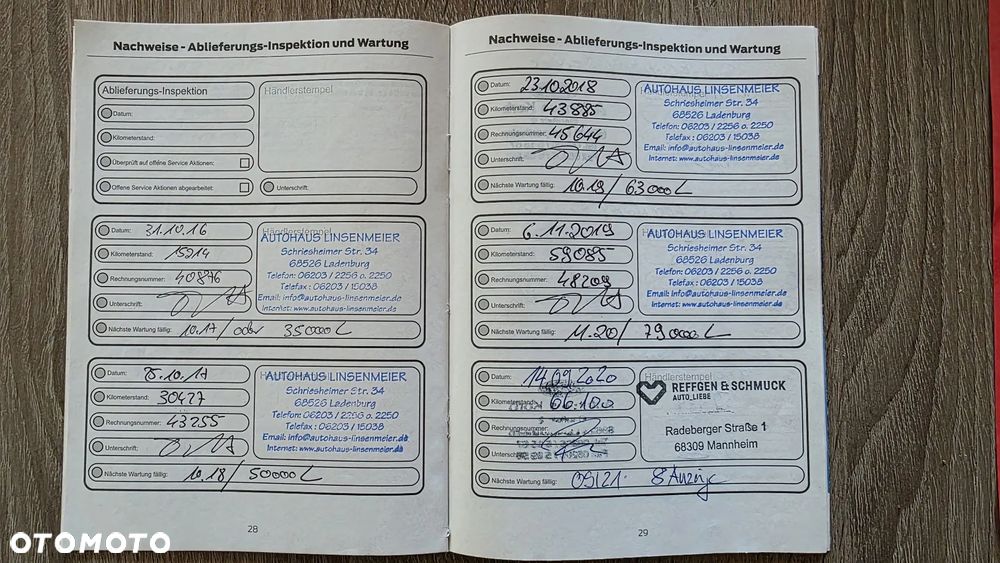 Nachweise - Ablieferungs-Inspektion und Wartung
Ablieferungs-Inspektion
Händlerstempel
Datum:
Kilometerstand:
Überprüft auf offene Service Aktionen:
Offene Service Aktionen abgearbeitet:
Unterschrift:
Datum: 31.10.16
Kilometerstand: 15914
Rechnungsnummer: 40876
Unterschrift:
Händlerstempel
AUTOHAUS LINSENMEIER
Schriesheimer Str. 34
68526 Ladenburg
Telefon: 06203 / 2256 o. 2250
Telefax : 06203 / 15038
Email: info@autohaus-linsenmeier.de
Internet: www.autohaus-linsenmeier.de
Nächste Wartung fällig: 10.17 / oder 35000
Datum: .10.17
Kilometerstand: 30427
Rechnungsnummer: 43255
Unterschrift:
AUTOHAUS LINSENMEIER
Schriesheimer Str. 34
68526 Ladenburg
Telefon: 06203 / 2256 o. 2250
Telefax : 06203 / 15038
Email: info@autohaus-linsenmeier.de
Internet: www.autohaus-linsenmeier.de
Nächste Wartung fällig: 10.18 / 50000
28
Nachweise - Ablieferungs-Inspektion und Wartung
Datum: 23.10.2018
Kilometerstand: 43885
Rechnungsnummer: 45644
Unterschrift:
AUTOHAUS LINSENMEIER
Schriesheimer Str. 34
68526 Ladenburg
Telefon: 06203 / 2256 o. 2250
Telefax : 06203 / 15038
Email: info@autohaus-linsenmeier.de
Internet: www.autohaus-linsenmeier.de
Nächste Wartung fällig: 10.19 / 63000
Datum: 6.11.2019
Kilometerstand: 59085
Rechnungsnummer: 48209
Unterschrift:
Händlerstempel
AUTOHAUS LINSENMEIER
Schriesheimer Str. 34
68526 Ladenburg
Telefon: 06203 / 2256 o. 2250
Telefax : 06203 / 15038
Email: info@autohaus-linsenmeier.de
Internet: www.autohaus-linsenmeier.de
Nächste Wartung fällig: 11.20 / 79000
Datum: 14.09.2020
Kilometerstand: 66.100
Rechnungsnummer:
Unterschrift:
Händlerstempel
REFFGEN & SCHMUCK
AUTO_LIEBE
Radeberger Straße 1
68309 Mannheim
Nächste Wartung fällig: 09/21
29
OTOMOTO